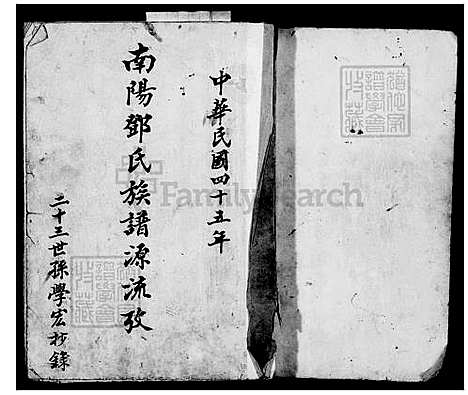 中華民國四十五年
南陽鄧氏族譜源流攷
二十三世孫學宏抄錄
FamilySearch